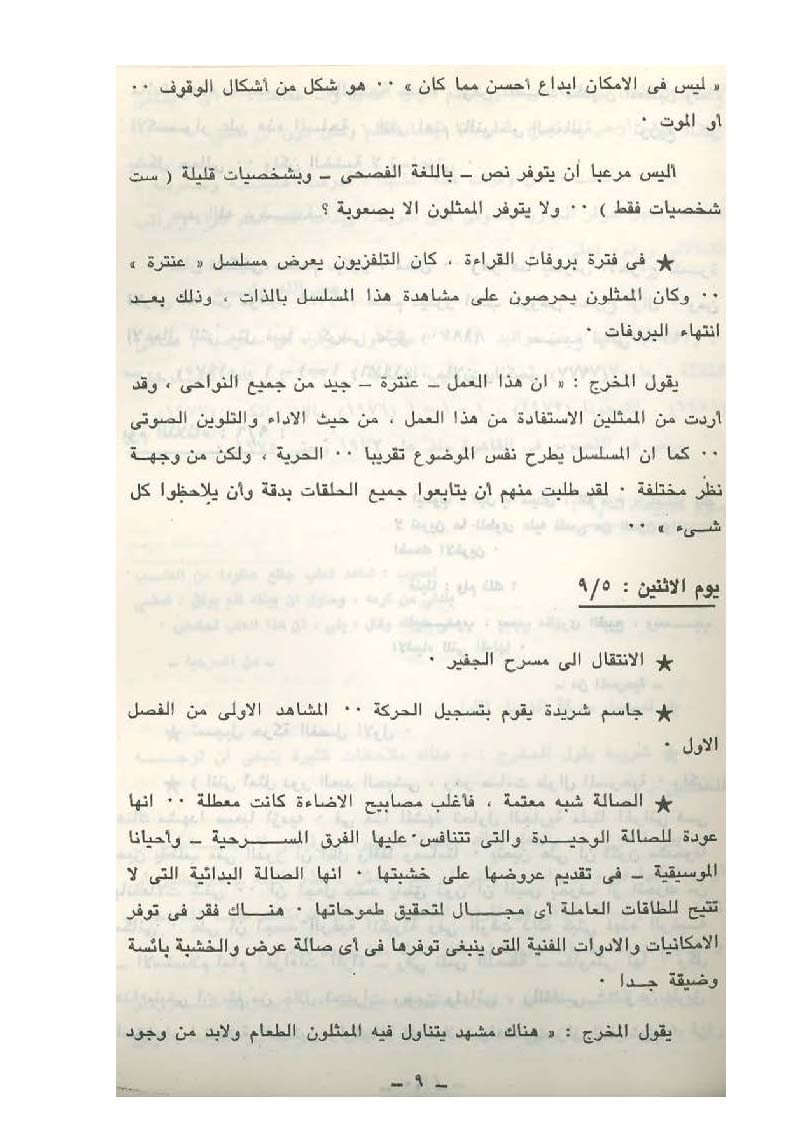 « ليس فى الامكان ابداع أحسن مما كان » ٠٠ هو شكل من أشكال الوقوف ٠٠
أو الموت ٠
أليس مرعبا أن يتوفر نص ــ باللغة الفصحى ــ وبشخصيات قليلة ( ست
شخصيات فقط ) ٠٠ ولا يتوفر الممثلون الا بصعوبة ؟
★ فى فترة بروفات القراءة ، كان التلفزيون يعرض مسلسل « عنترة »
٠٠ وكان الممثلون يحرصون على مشاهدة هذا المسلسل بالذات ، وذلك بعـد
انتهاء البروفات ٠
يقول المخرج : « ان هذا العمل ــ عنترة ــ جيد من جميع النواحى ، وقد
أردت من الممثلين الاستفادة من هذا العمل ، من حيث الاداء والتلوين الصوتى
٠٠ كما ان المسلسل يطرح نفس الموضوع تقريبا ٠٠ الحرية ، ولكن من وجهـة
نظر مختلفة ٠ لقد طلبت منهم أن يتابعوا جميع الحلقات بدقة وأن يلاحظوا كل
شــىء » ٠٠
يوم الاثنين : ٩/٥
★ الانتقال الى مسرح الجفير ٠
★ جاسم شريدة يقوم بتسجيل الحركة ٠٠ المشاهد الاولى من الفصل
الاول ٠
★ الصالة شبه معتمة ، فأغلب مصابيح الاضاءة كانت معطلة ٠٠ انها
عودة للصالة الوحيـدة والتى تتنافس عليها الفرق المســرحية ــ وأحيانا
الموسيقية ــ فى تقديم عروضها على خشبتها ٠ انها الصالة البدائية التى لا
تتيح للطاقات العاملة أى مجـــال لتحقيق طموحاتها ٠ هنــاك فقر فى توفر
الامكانيات والادوات الفنية التى ينبغى توفرها فى أى صالة عرض والخشبة بائسة
وضيقة جـدا ٠
يقول المخرج : « هناك مشهد يتناول فيه الممثلون الطعام ولابد من وجود
ــ ٩ ــ